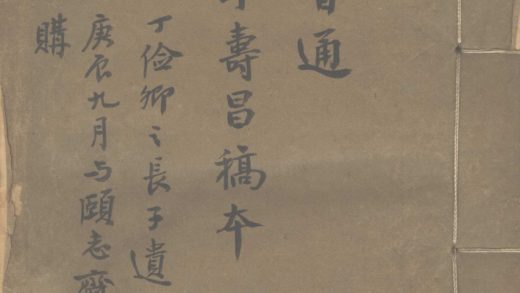 通
壽昌稿本
丁俭卿之長子遺
庚辰九月与頤志齋
購